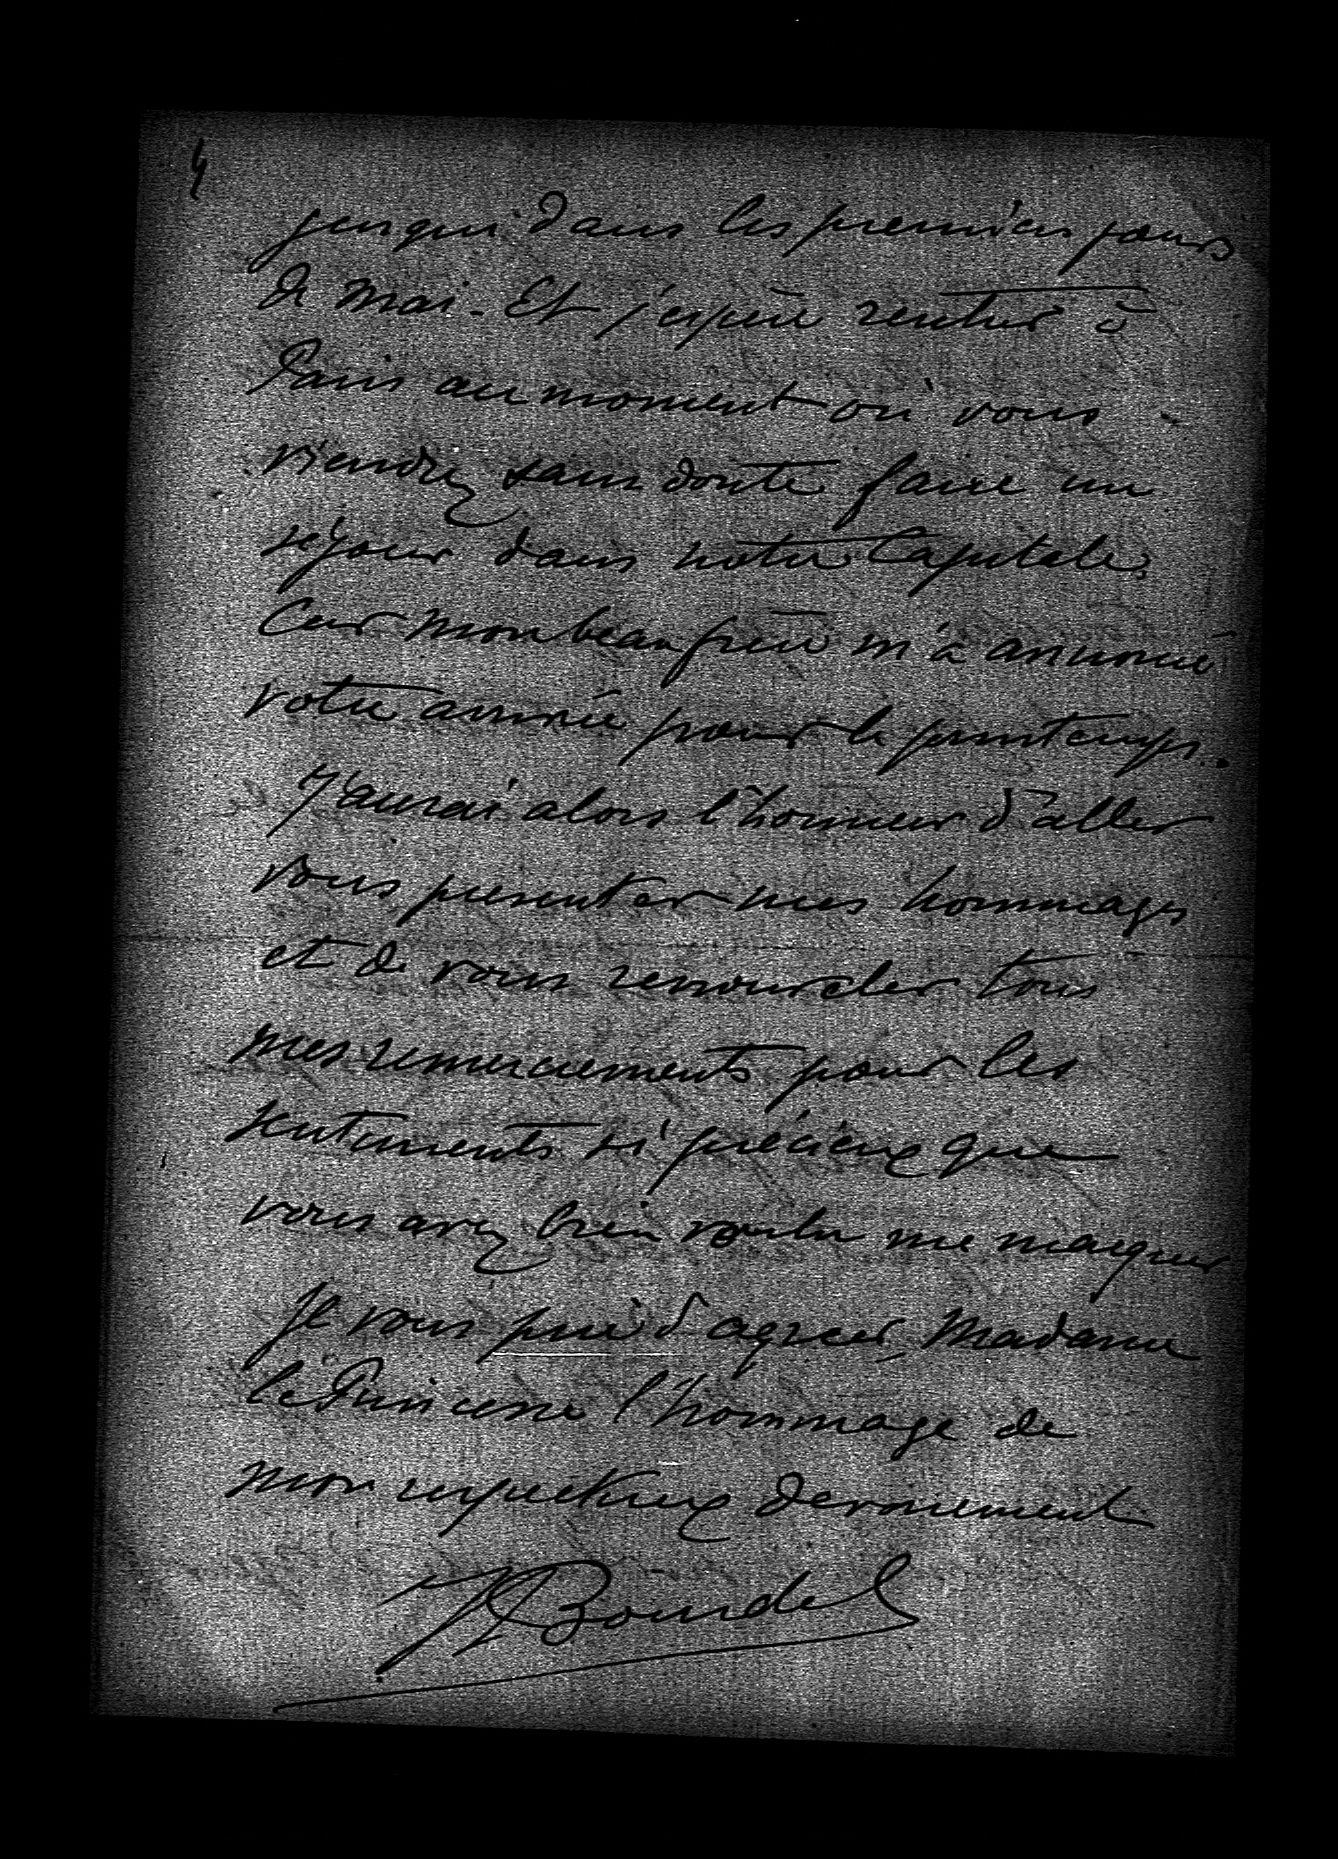 4
jusqui dans les premiers jours
de mai. Et j'espère rentrer à
Paris au moment où vous
viendrez sans doute faire un
séjour dans notre Capitale.
Car mon beau frère m'à annoncé
votre arrivée pour le printemps.
J'aurai alors l'honneur d'aller
vous presenter mes hommages
et de vous renouveler tous
mes remerciements pour les
sentiments si précieux que
vous avez bien voulu me marquer
Je vous prie d'agreer, Madame
la Princesse l'hommage de
mon respectueux devouement
Bourdel